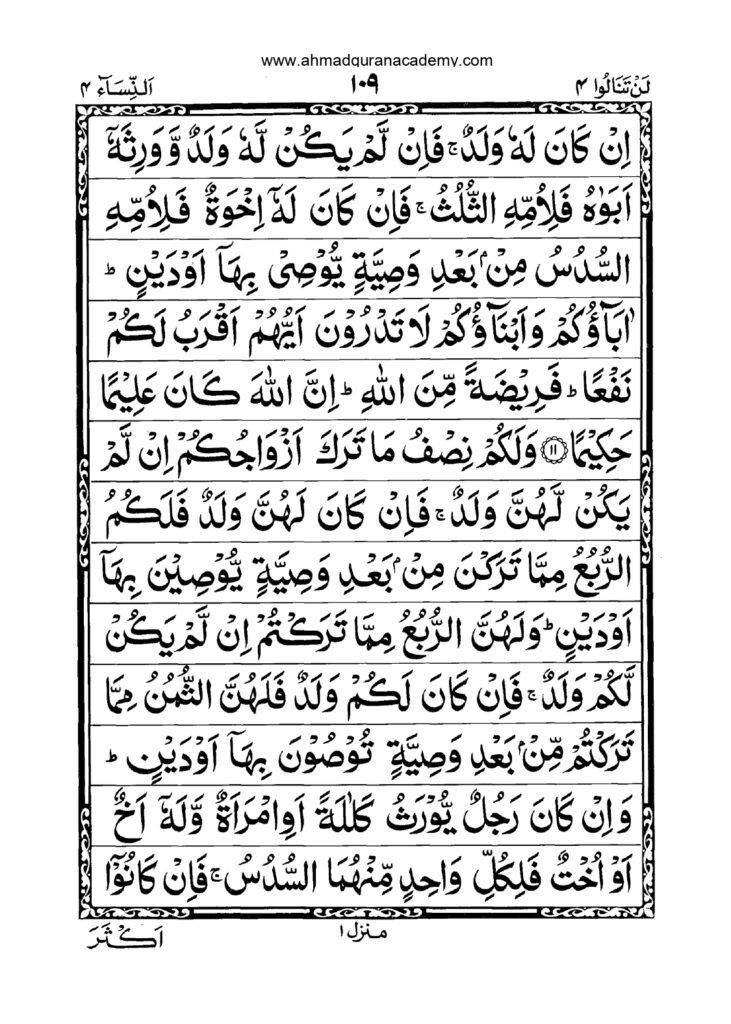 www.ahmadquranacademy.com
لَنْ تَنَالُوا ۴ ١٠٩ اَلنِّسَآء ۴
اِنْ كَانَ لَهٗ وَلَدٌ ۚ فَاِنْ لَّمْ يَكُنْ لَّهٗ وَلَدٌ وَّ وَرِثَهٗۤ
اَبَوٰهُ فَلِاُمِّهِ الثُّلُثُ ۚ فَاِنْ كَانَ لَهٗۤ اِخْوَةٌ فَلِاُمِّهِ
السُّدُسُ مِنْۢ بَعْدِ وَصِيَّةٍ يُّوْصِىْ بِهَاۤ اَوْ دَيْنٍ ؕ
اٰبَآؤُكُمْ وَ اَبْنَآؤُكُمْ لَا تَدْرُوْنَ اَيُّهُمْ اَقْرَبُ لَكُمْ
نَفْعًا ؕ فَرِيْضَةً مِّنَ اللّٰهِ ؕ اِنَّ اللّٰهَ كَانَ عَلِيْمًا
حَكِيْمًا ﴿١١﴾ وَلَكُمْ نِصْفُ مَا تَرَكَ اَزْوَاجُكُمْ اِنْ لَّمْ
يَكُنْ لَّهُنَّ وَلَدٌ ۚ فَاِنْ كَانَ لَهُنَّ وَلَدٌ فَلَكُمُ
الرُّبُعُ مِمَّا تَرَكْنَ مِنْۢ بَعْدِ وَصِيَّةٍ يُّوْصِيْنَ بِهَاۤ
اَوْ دَيْنٍ ؕ وَلَهُنَّ الرُّبُعُ مِمَّا تَرَكْتُمْ اِنْ لَّمْ يَكُنْ
لَّكُمْ وَلَدٌ ۚ فَاِنْ كَانَ لَكُمْ وَلَدٌ فَلَهُنَّ الثُّمُنُ مِمَّا
تَرَكْتُمْ مِّنْۢ بَعْدِ وَصِيَّةٍ تُوْصُوْنَ بِهَاۤ اَوْ دَيْنٍ ؕ
وَ اِنْ كَانَ رَجُلٌ يُّوْرَثُ كَلٰلَةً اَوِ امْرَاَةٌ وَّلَهٗۤ اَخٌ
اَوْ اُخْتٌ فَلِكُلِّ وَاحِدٍ مِّنْهُمَا السُّدُسُ ۚ فَاِنْ كَانُوْۤا
منزل ١
اَكْثَرَ